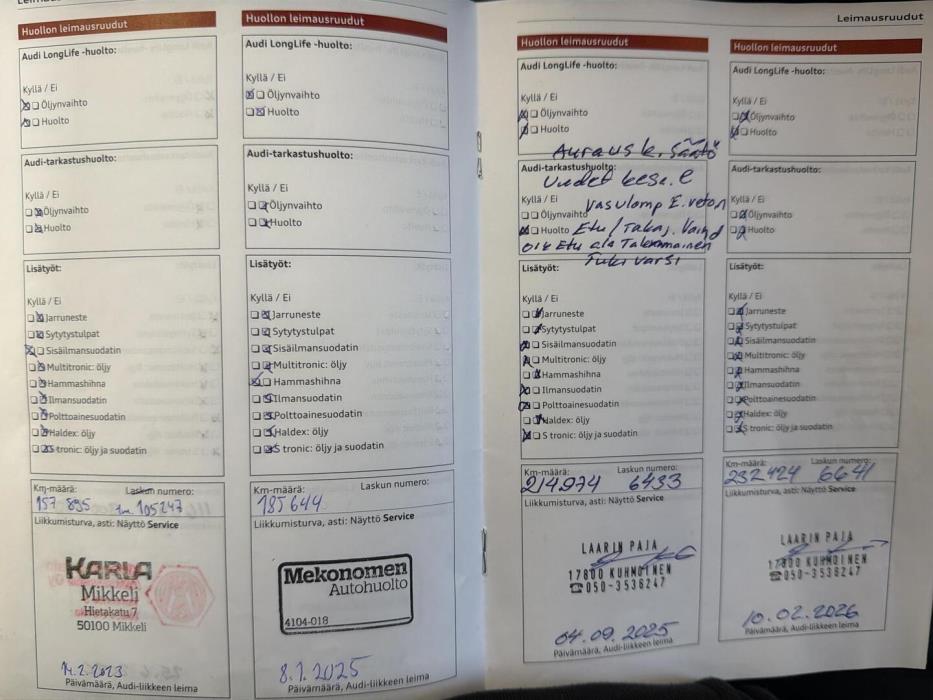 Leimausruudut
Huollon leimausruudut
Audi LongLife -huolto:
Kyllä / Ei
Öljynvaihto
Huolto
Audi-tarkastushuolto:
Kyllä / Ei
Öljynvaihto
Huolto
Lisätyöt:
Kyllä / Ei
Jarruneste
Sytytystulpat
Sisäilmansuodatin
Multitronic: öljy
Hammashihna
Ilmansuodatin
Polttoainesuodatin
Haldex: öljy
S tronic: öljy ja suodatin
Km-määrä: Laskun numero:
157 895 105247
Liikkumisturva, asti: Näyttö Service
KARLA
Mikkeli
Hietakatu 7
50100 Mikkeli
14.2.2023
Päivämäärä, Audi-liikkeen leima
Huollon leimausruudut
Audi LongLife -huolto:
Kyllä / Ei
Öljynvaihto
Huolto
Audi-tarkastushuolto:
Kyllä / Ei
Öljynvaihto
Huolto
Lisätyöt:
Kyllä / Ei
Jarruneste
Sytytystulpat
Sisäilmansuodatin
Multitronic: öljy
Hammashihna
Ilmansuodatin
Polttoainesuodatin
Haldex: öljy
S tronic: öljy ja suodatin
Km-määrä: Laskun numero:
185644
Liikkumisturva, asti: Näyttö Service
Mekonomen
Autohuolto
4104-018
8.1.2025
Päivämäärä, Audi-liikkeen leima
Huollon leimausruudut
Audi LongLife -huolto:
Kyllä / Ei
Öljynvaihto
Huolto
Auraus k. säätö
Audi-tarkastushuolto:
Uudet kesä.
Kyllä / Ei
Öljynvaihto
Huolto Etu / Takaj.
Etu ala
Tukivarsi
Lisätyöt:
Kyllä / Ei
Jarruneste
Sytytystulpat
Sisäilmansuodatin
Multitronic: öljy
Hammashihna
Ilmansuodatin
Polttoainesuodatin
Haldex: öljy
S tronic: öljy ja suodatin
Km-määrä: Laskun numero:
214974 6433
Liikkumisturva, asti: Näyttö Service
LAARIN PAJA
17800 KUHMOINEN
☎050-3536247
04.09.2025
Päivämäärä, Audi-liikkeen leima
Huollon leimausruudut
Audi LongLife -huolto:
Kyllä / Ei
Öljynvaihto
Huolto
Audi-tarkastushuolto:
Kyllä / Ei
Öljynvaihto
Huolto
Lisätyöt:
Kyllä / Ei
Jarruneste
Sytytystulpat
Sisäilmansuodatin
Multitronic: öljy
Hammashihna
Ilmansuodatin
Polttoainesuodatin
Haldex: öljy
S tronic: öljy ja suodatin
Km-määrä: Laskun numero:
232424 6641
Liikkumisturva, asti: Näyttö Service
LAARIN PAJA
17800 KUHMOINEN
☎050-3536247
10.02.2026
Päivämäärä, Audi-liikkeen leima